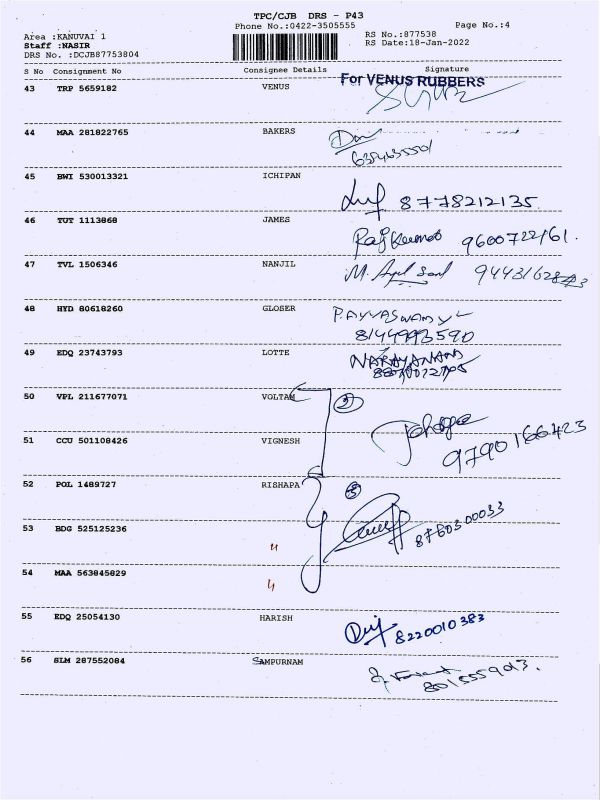 TPC/CJB DRS - P43
Phone No.:0422-3505555 Page No.:4
Area :KANUVAI 1 RS No.:877538
Staff :NASIR RS Date:18-Jan-2022
DRS No. :DCJB87753804
S No Consignment No Consignee Details Signature
For VENUS RUBBERS
43 TRP 5659182 VENUS
44 MAA 281822765 BAKERS
45 BWI 530013321 ICHIPAN
8778212135
46 TUT 1113868 JAMES
Rajkumar 9600722161.
47 TVL 1506346 NANJIL
48 HYD 80618260 GLOSER
8144993590
49 EDQ 23743793 LOTTE
NARAYANAN
50 VPL 211677071 VOLTAM 2
51 CCU 501108426 VIGNESH
9790166423
52 POL 1489727 RISHAPA 3
53 BDG 525125236 "
8760300033
54 MAA 563845829 "
55 EDQ 25054130 HARISH
8220010383
56 SLM 287552084 SAMPURNAM